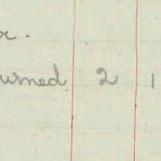 r.
urned. 2 1